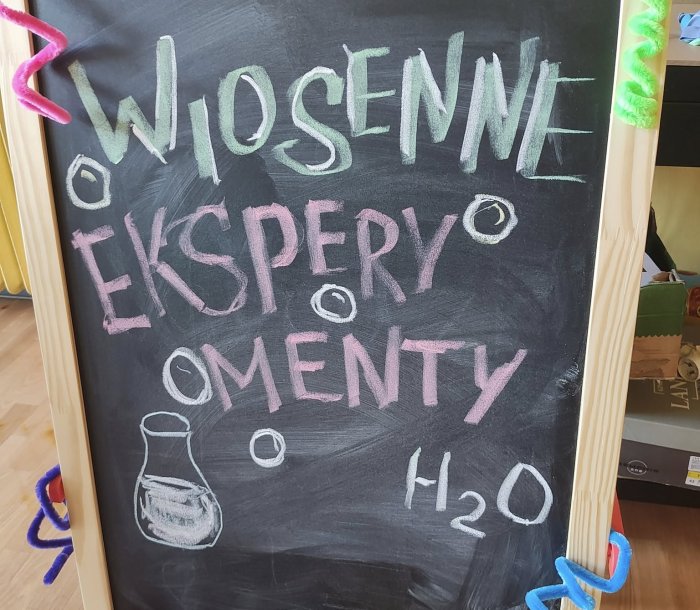 WIOSENNE
EKSPERY
MENTY
H₂O
LAN